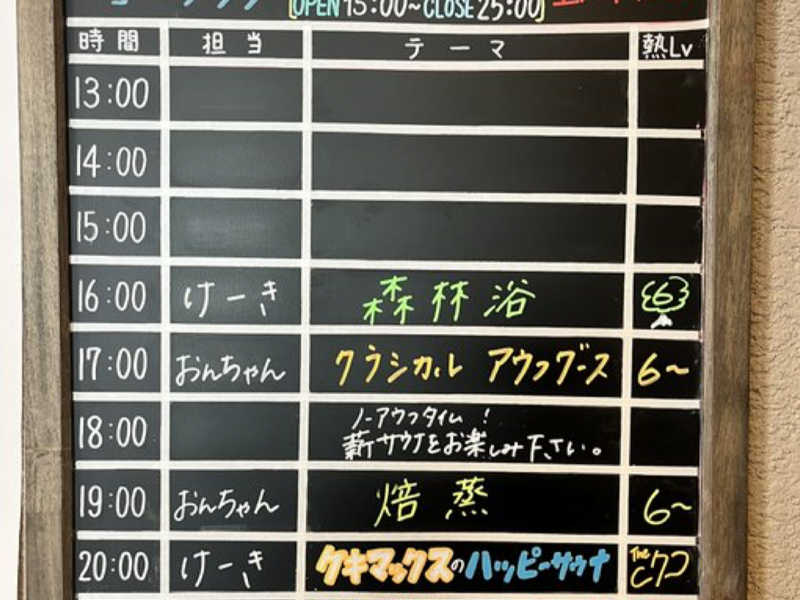 OPEN 15:00~CLOSE 25:00
時間 担当 テーマ 熱Lv
13:00
14:00
15:00
16:00 けーき 森林浴 6
17:00 おんちゃん クラシカル アウフグース 6~
18:00 ノーアウフタイム!
薪サウナをお楽しみ下さい。
19:00 おんちゃん 焙蒸 6~
20:00 けーき ケキマックスのハッピーサウナ The